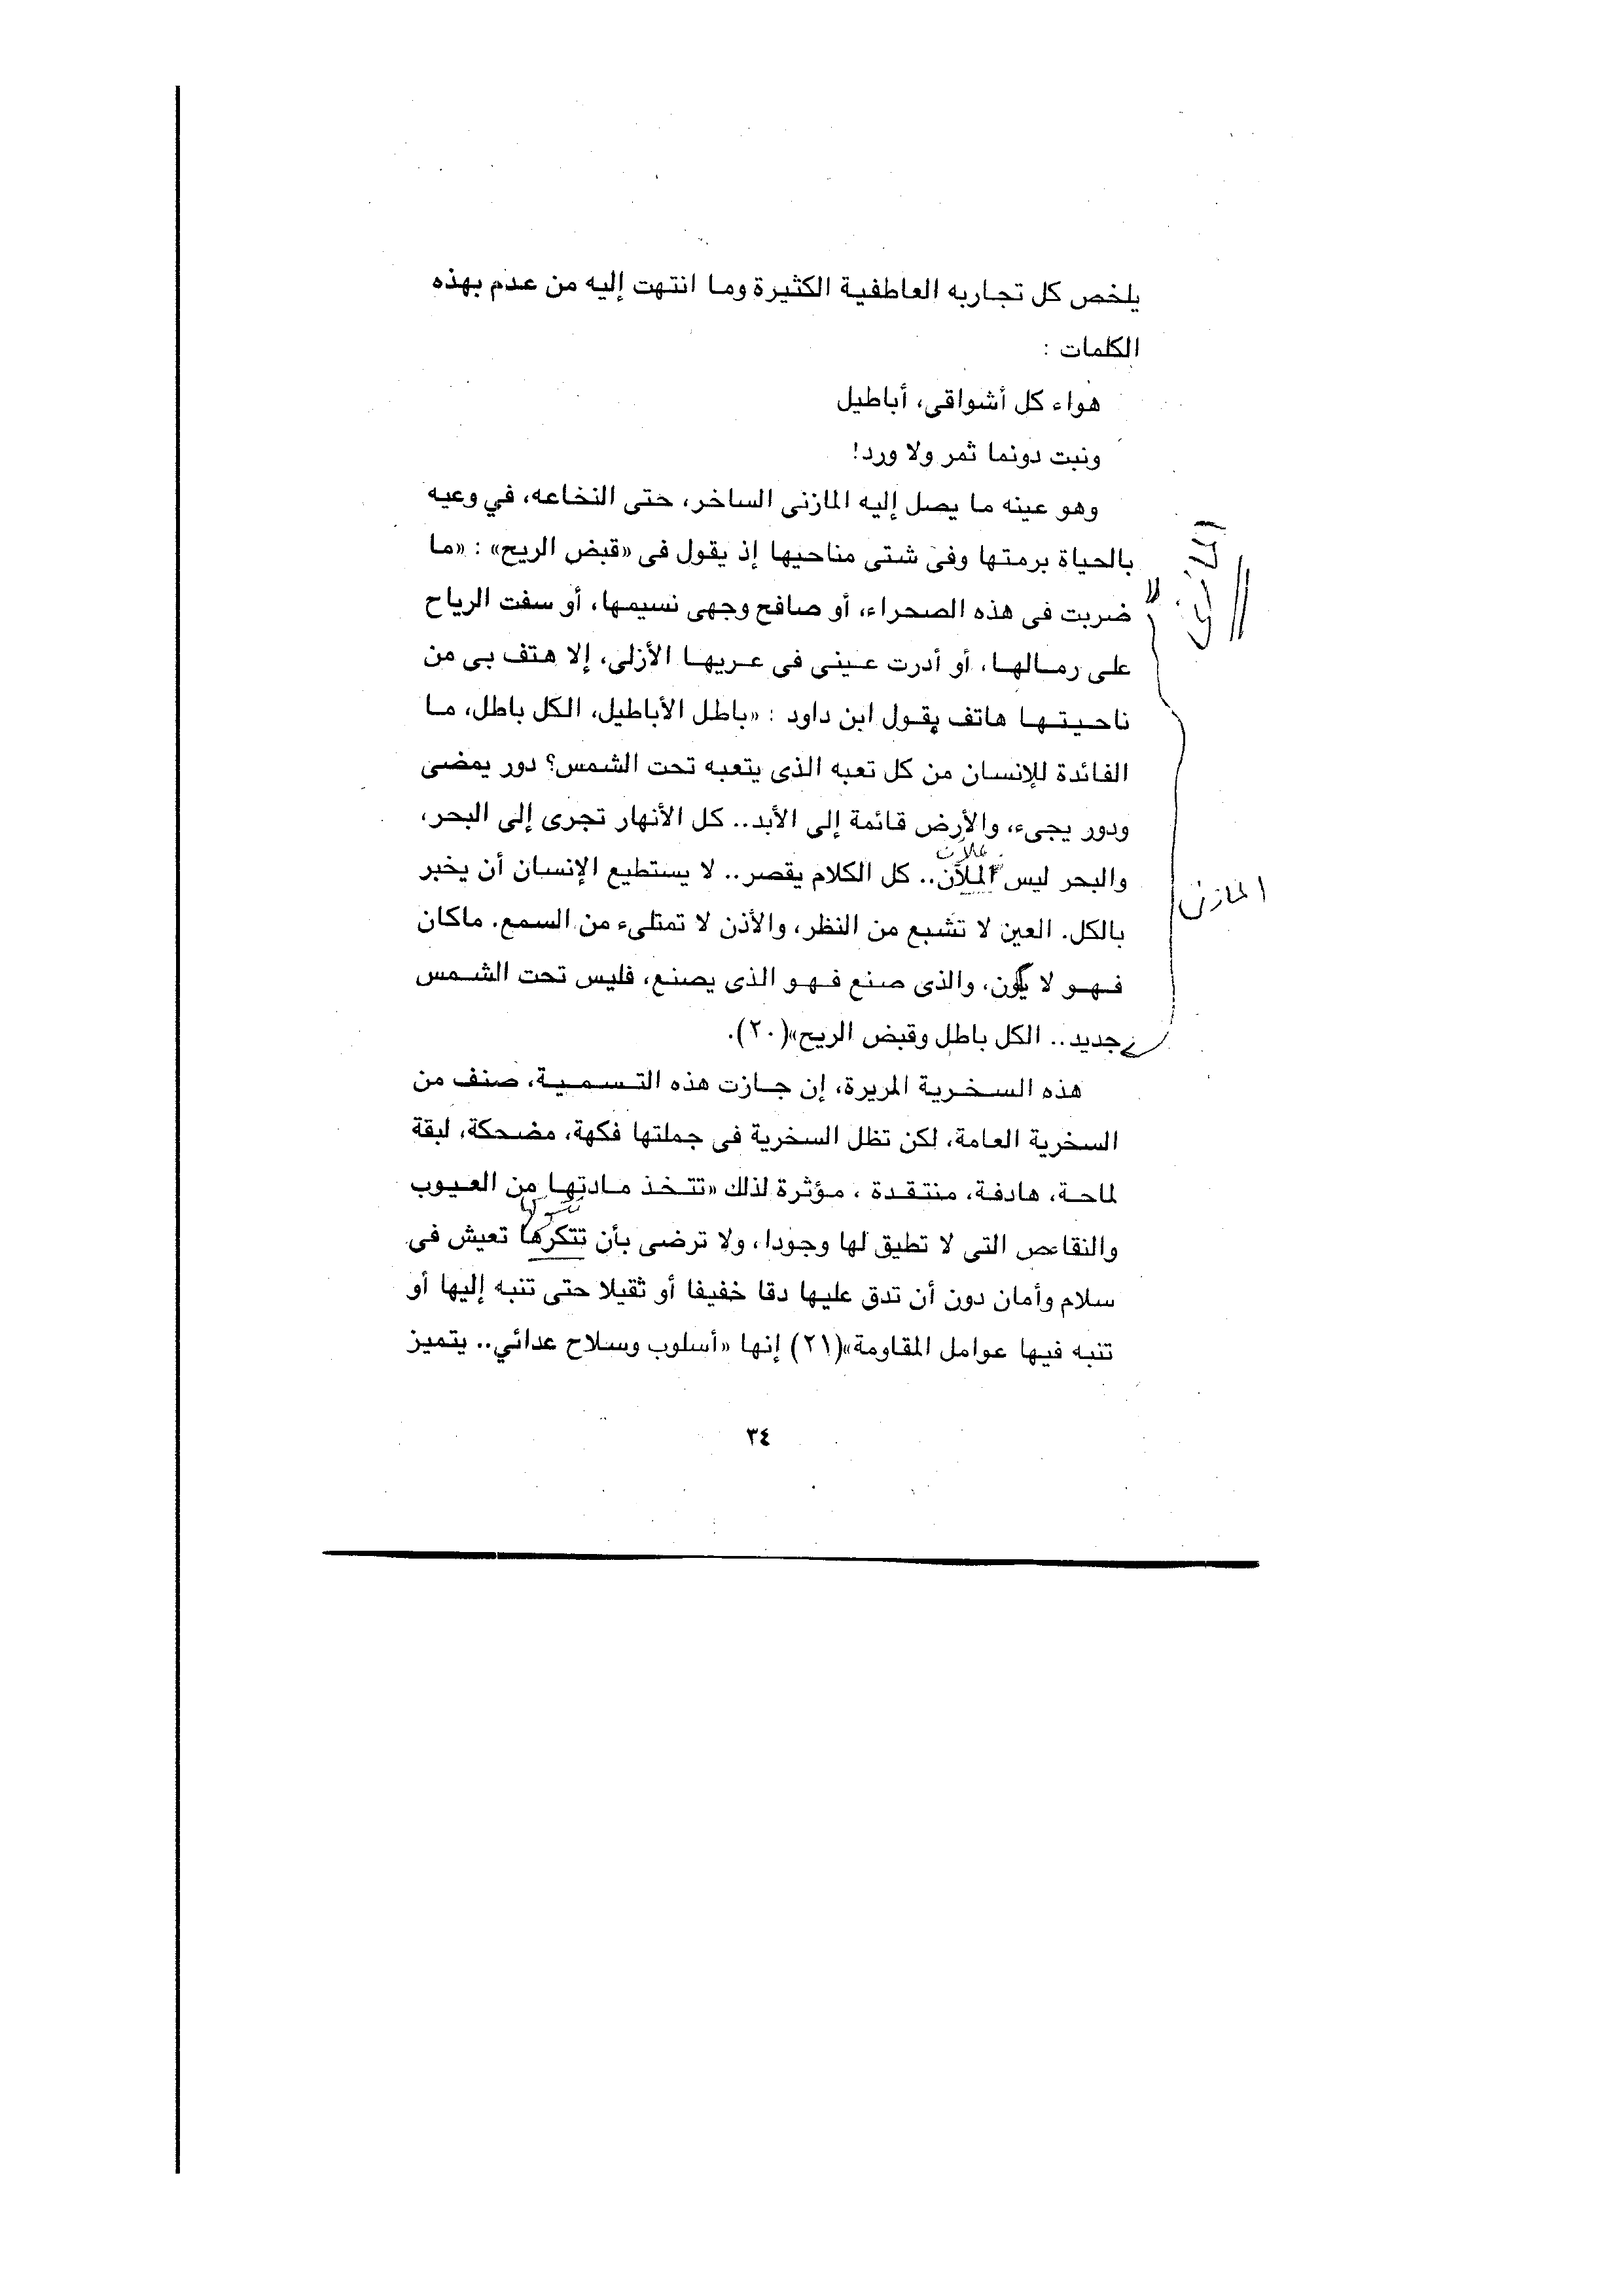 يلخص كل تجاربه العاطفية الكثيرة وما انتهت إليه من عدم بهذه
الكلمات :
هواء كل أشواقى، أباطيل
ونبت دونما ثمر ولا ورد!
وهو عينه ما يصل إليه المازنى الساخر، حتى النخاعه، في وعيه
بالحياة برمتها وفى شتى مناحيها إذ يقول فى «قبض الريح» : «ما
ضربت فى هذه الصحراء، أو صافح وجهى نسيمها، أو سفت الرياح
على رمالها، أو أدرت عينى فى عريها الأزلى، إلا هتف بى من
ناحيتها هاتف يقول ابن داود : «باطل الأباطيل، الكل باطل، ما
الفائدة للإنسان من كل تعبه الذى يتعبه تحت الشمس؟ دور يمضى
ودور يجىء، والأرض قائمة إلى الأبد.. كل الأنهار تجرى إلى البحر،
والبحر ليس الملآن.. كل الكلام يقصر.. لا يستطيع الإنسان أن يخبر
بالكل. العين لا تشبع من النظر، والأذن لا تمتلىء من السمع. ماكان
فهو لا يكون، والذى صنع فهو الذى يصنع، فليس تحت الشمس
جديد.. الكل باطل وقبض الريح»(٢٠).
هذه السخرية المريرة، إن جازت هذه التسمية، صنف من
السخرية العامة، لكن تظل السخرية فى جملتها فكهة، مضحكة، لبقة
لماحة، هادفة، منتقدة ، مؤثرة لذلك «تتخذ مادتها من العيوب
والنقاءص التى لا تطيق لها وجودا، ولا ترضى بأن تتكرها تعيش فى
سلام وأمان دون أن تدق عليها دقا خفيفا أو ثقيلا حتى تنبه إليها أو
تنبه فيها عوامل المقاومة»(٢١) إنها «أسلوب وسلاح عدائي.. يتميز
٣٤
المازنى
المازنى